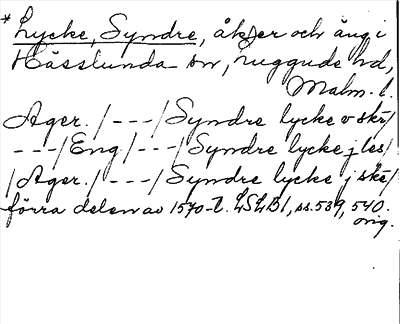 * Lycke, Syndre, åker och äng i
Hässlunda sn, Luggude hd,
Malm. l.
Ager. /---/ Syndre lycke v skr/
---/ Eng /---/ Syndre lycke j les/
/Ager. /---/ Syndre lycke j skr/
förra delen av 1570-t. LSLB1, ss. 539, 540.
orig.